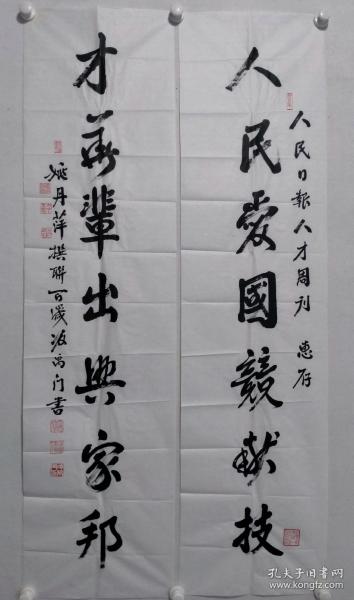 人民日報人才周刊 惠存
人民愛國競献技
才華輩出興家邦
姚丹萍撰聯百歲沈禹门書
孔夫子旧书网